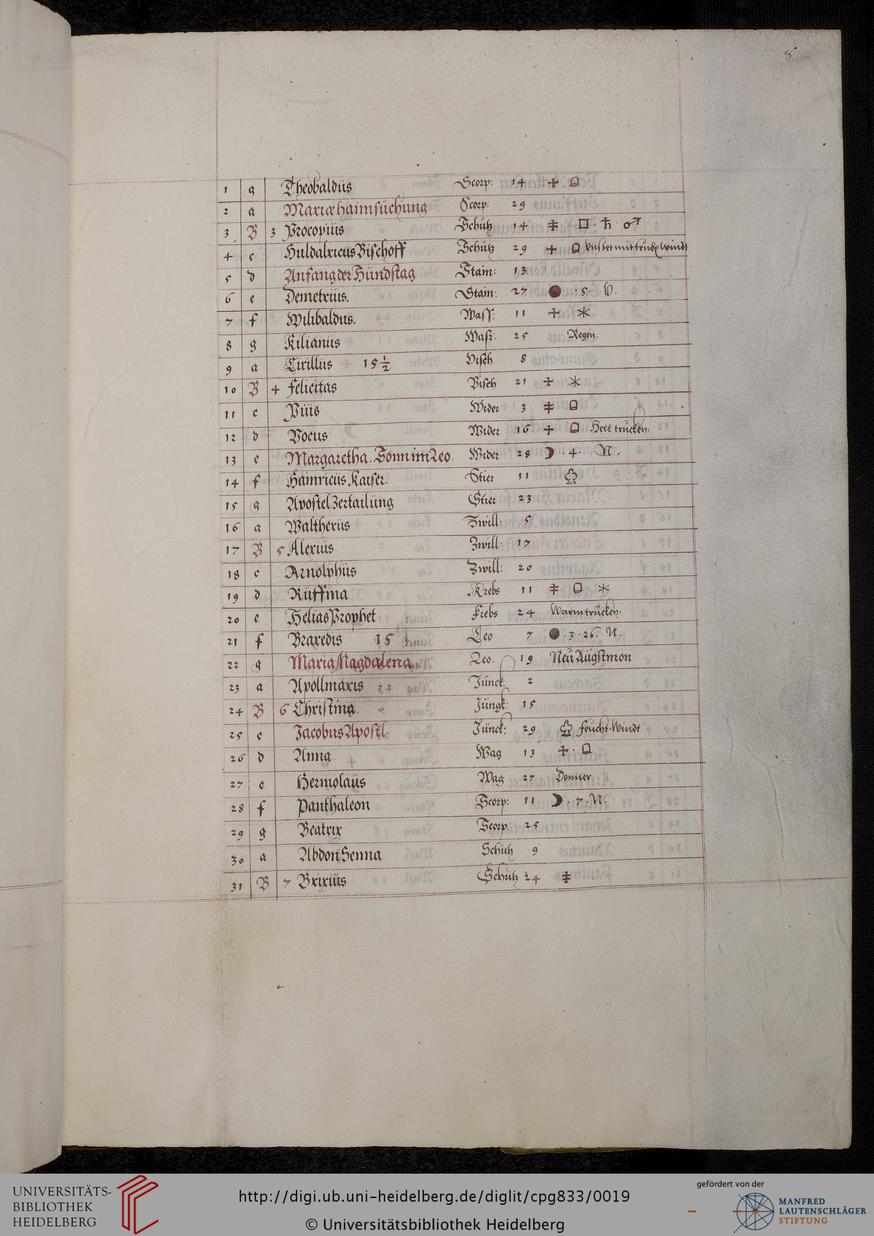 8
1 g Theobaldus Scorp: 14
2 a Mariæ haimsuchung Scorp: 29
3 B 3 Procopius Schütz 14 □ · ♄ ♂
4 c Huldalricus Bischoff Schütz 29
5 d Anfang der Hundstag Stain: 13
6 e Demetrius. Stain: 27 · 5 ·
7 f Wilibaldus. Wass: 11
8 g Kilianus Wass: 25 Regen.
9 a Cirillus 15 ½ Visch 8
10 B 4 felicitas Visch 21
11 c Pius Wider 3
12 d Wider 16 trucken
13 e Margaretha. Sonn im Leo. Wider 28 ☽ · 4 · N.
14 f Hainricus Kaiser. Stier 11
15 g Apostel Zertailung Stier 23
16 a Waltherus Zwill: 5
17 B 5 Alexius Zwill: 17
18 c Arnolphus Zwill: 20
19 d Ruffina Krebs 11
20 e Helias Prophet Krebs 24 Warm trücken
21 f Praxedis 15 Leo 7 · 3 · 26 · N.
22 g Maria Magdalena Leo. 19 Neu Augstmon
23 a Apollinaris Junck 2
24 B 6 Christina Jungk: 15
25 c Jacobus Apostl Junck: 29 feücht Windt
26 d Anna Wag 13
27 e Hermolaus Wag 27 Donner
28 f Panthaleon Scorp: 11 ☽ · 7 · N.
29 g Beatrix Scorp: 25
30 a Abdon Senna Schütz 9
31 B 7 Brixius Schütz 24
UNIVERSITÄTS-
BIBLIOTHEK
HEIDELBERG
http://digi.ub.uni-heidelberg.de/diglit/cpg833/0019
© Universitätsbibliothek Heidelberg
gefördert von der
MANFRED
LAUTENSCHLÄGER
STIFTUNG